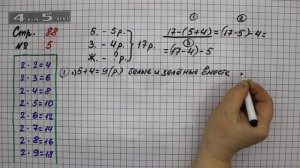 Стр. 88
№ 5
Б. - 5р.
З. - 4р.
Ж. - ?
17р.
① ②
17-(5+4)=(17-5)-4=
③
=(17-4)-5
① 1) 5+4=9(р.) белые и зелёные вместе
2·2=4
2·3=6
2·4=8
2·5=10
2·6=12
2·7=14
2·8=16
2·9=18